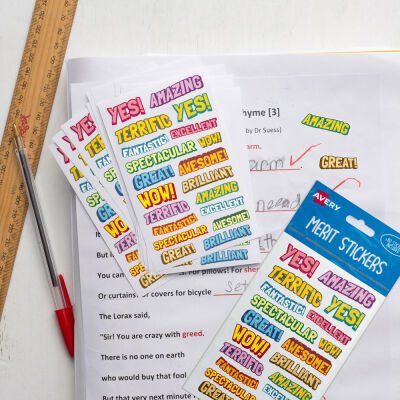 hyme [3]
by Dr Suess)
arm.
AMAZING
GREAT!
YES! AMAZING
TERRIFIC YES!
FANTASTIC! EXCELLENT
SPECTACULAR WOW!
GREAT! AWESOME!
WOW! BRILLIANT
TERRIFIC AMAZING
EXCELLENT
FANTASTIC! AWESOME!
SPECTACULAR BRILLIANT
GREAT! BRILLIANT
need
AVERY
MERIT STICKERS
YES! AMAZING
TERRIFIC YES!
FANTASTIC! EXCELLENT
SPECTACULAR WOW!
GREAT! AWESOME!
WOW! BRILLIANT
TERRIFIC AMAZING
FANTASTIC! EXCELLENT
SPECTACULAR
GREAT!
It w
And
You can For pillows! For she
Or curtains! Or covers for bicycle
The Lorax said,
"Sir! You are crazy with greed.
There is no one on earth
who would buy that fool
But that very next minute